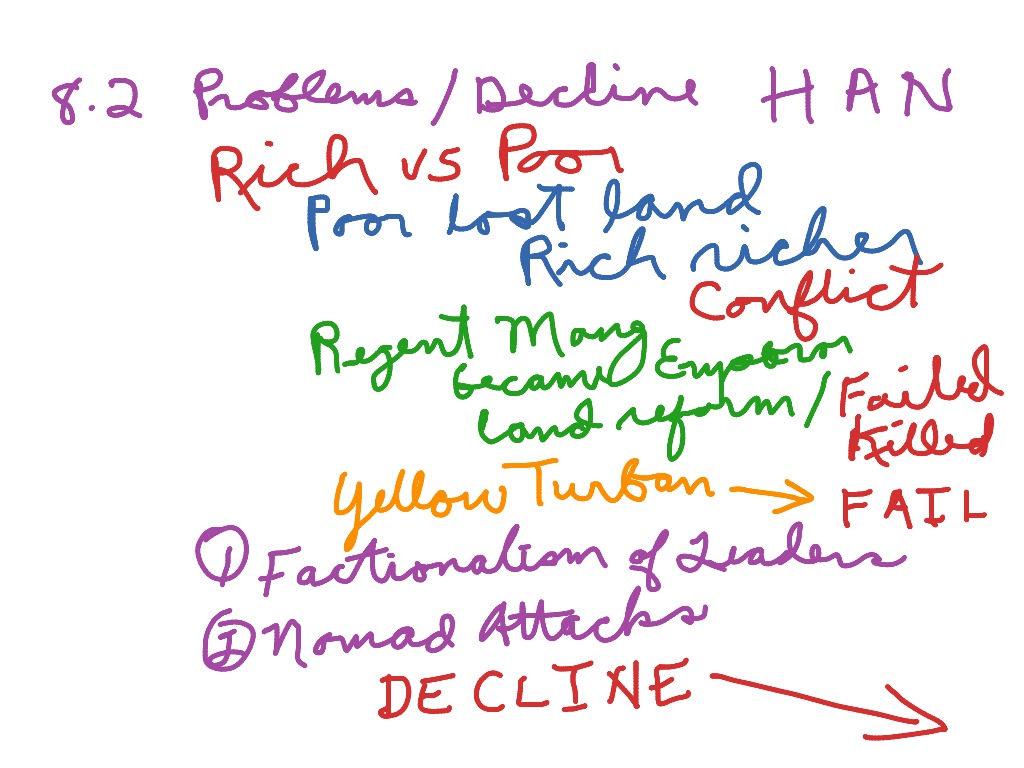 8.2 Problems/Decline HAN
Rich vs Poor
Poor lost land
Rich richer
Conflict
Regent Mang
became Emperor
land reform/ Failed
Killed
Yellow Turban → FAIL
① Factionalism of Leaders
② Nomad Attacks
DECLINE